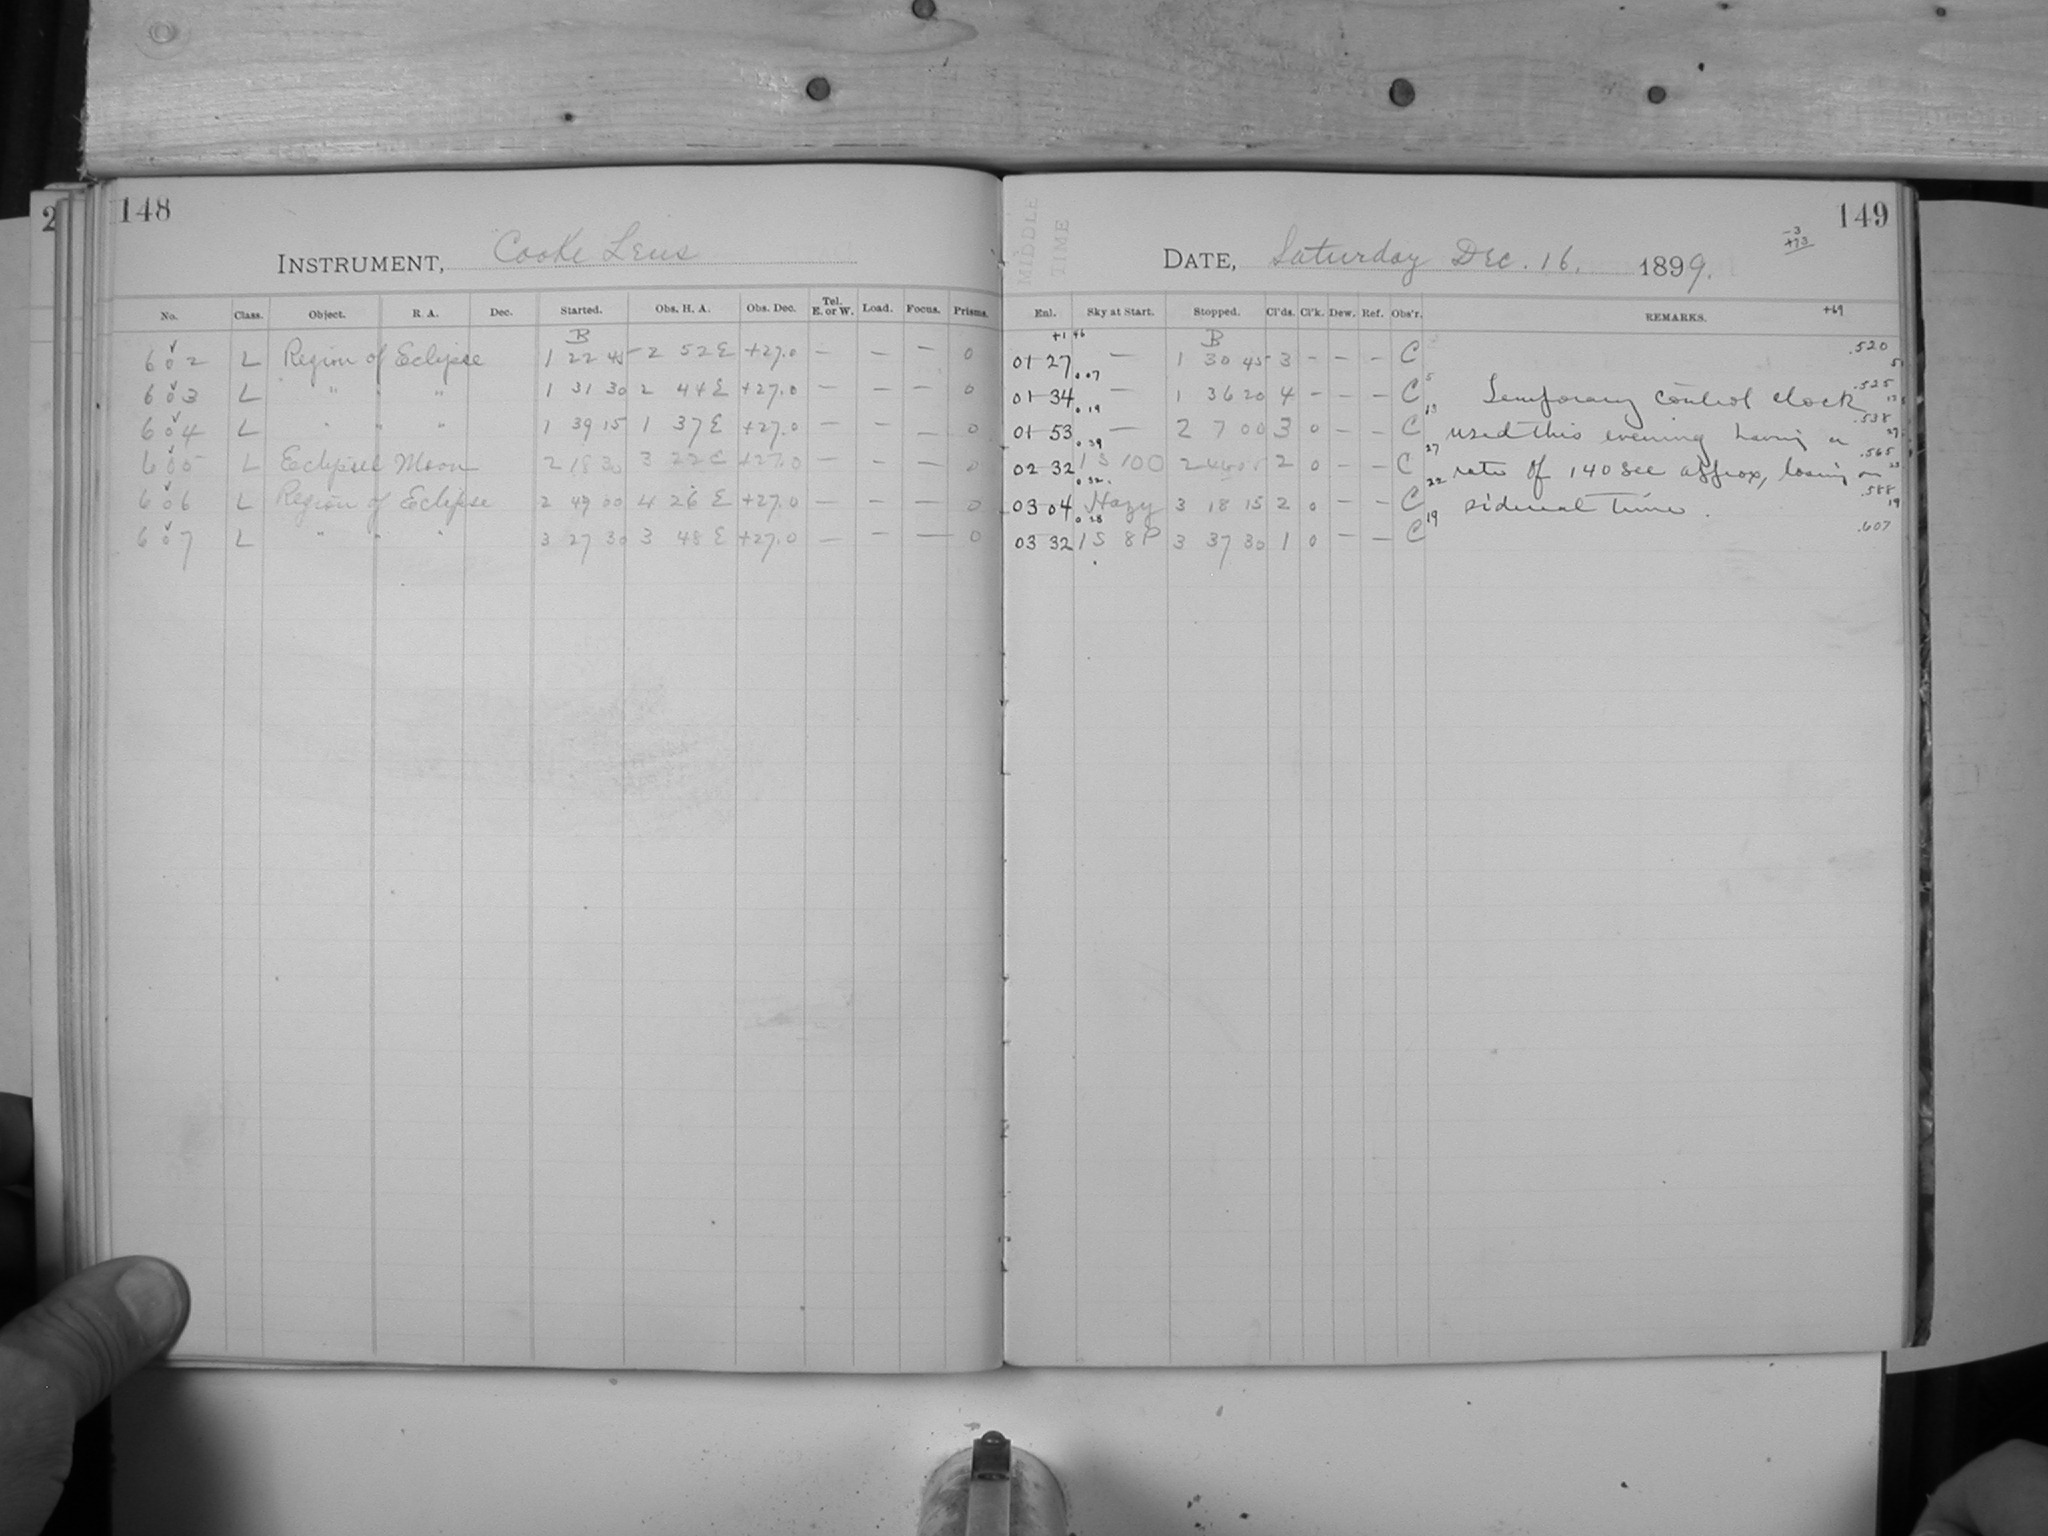 148
INSTRUMENT, Cooke Lens
No. Class. Object. R. A. Dec. Started. Obs. H. A. Obs. Dec. Tel. E. or W. Load. Focus. Prisms.
B
602 L Region of Eclipse 1 22 45 2 52 E +27.0 — — — 0
603 L " " " 1 31 30 2 44 E +27.0 — — — 0
604 L " " " 1 39 15 1 37 E +27.0 — — — 0
605 L Eclipsed Moon 2 18 30 3 22 E +27.0 — — — 0
606 L Region of Eclipse 2 49 00 4 26 E +27.0 — — — 0
607 L " " " 3 27 30 3 48 E +27.0 — — — 0
149
MIDDLE TIME
-3
+73
DATE, Saturday Dec. 16. 1899.
Enl. Sky at Start. Stopped. Cl'ds. Cl'k. Dew. Ref. Obs'r. REMARKS. +69
+1 46 B
01 27 — 1 30 45 3 – – – C .520
0 07 5
01 34 — 1 36 20 4 – – – C Temporary control clock .525
0 19 13
01 53 — 2 7 00 3 0 – – C used this evening having a .538
0 39 27
02 32 1 S 10 0 2 2 0 – – C rate of 140 sec approx, losing on .565
0 32 22
03 04 Hazy 3 18 15 2 0 – – C sidereal time. .588
0 28 19
03 32 1 S 8 P 3 37 30 1 0 – – C .607